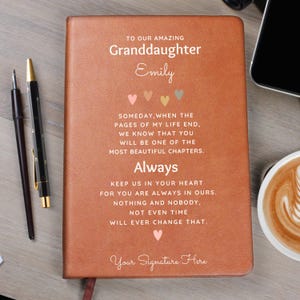 TO OUR AMAZING
Granddaughter
Emily
SOMEDAY, WHEN THE
PAGES OF MY LIFE END,
WE KNOW THAT YOU
WILL BE ONE OF THE
MOST BEAUTIFUL CHAPTERS.
Always
KEEP US IN YOUR HEART
FOR YOU ARE ALWAYS IN OURS.
NOTHING AND NOBODY,
NOT EVEN TIME
WILL EVER CHANGE THAT.
Your Signature Here